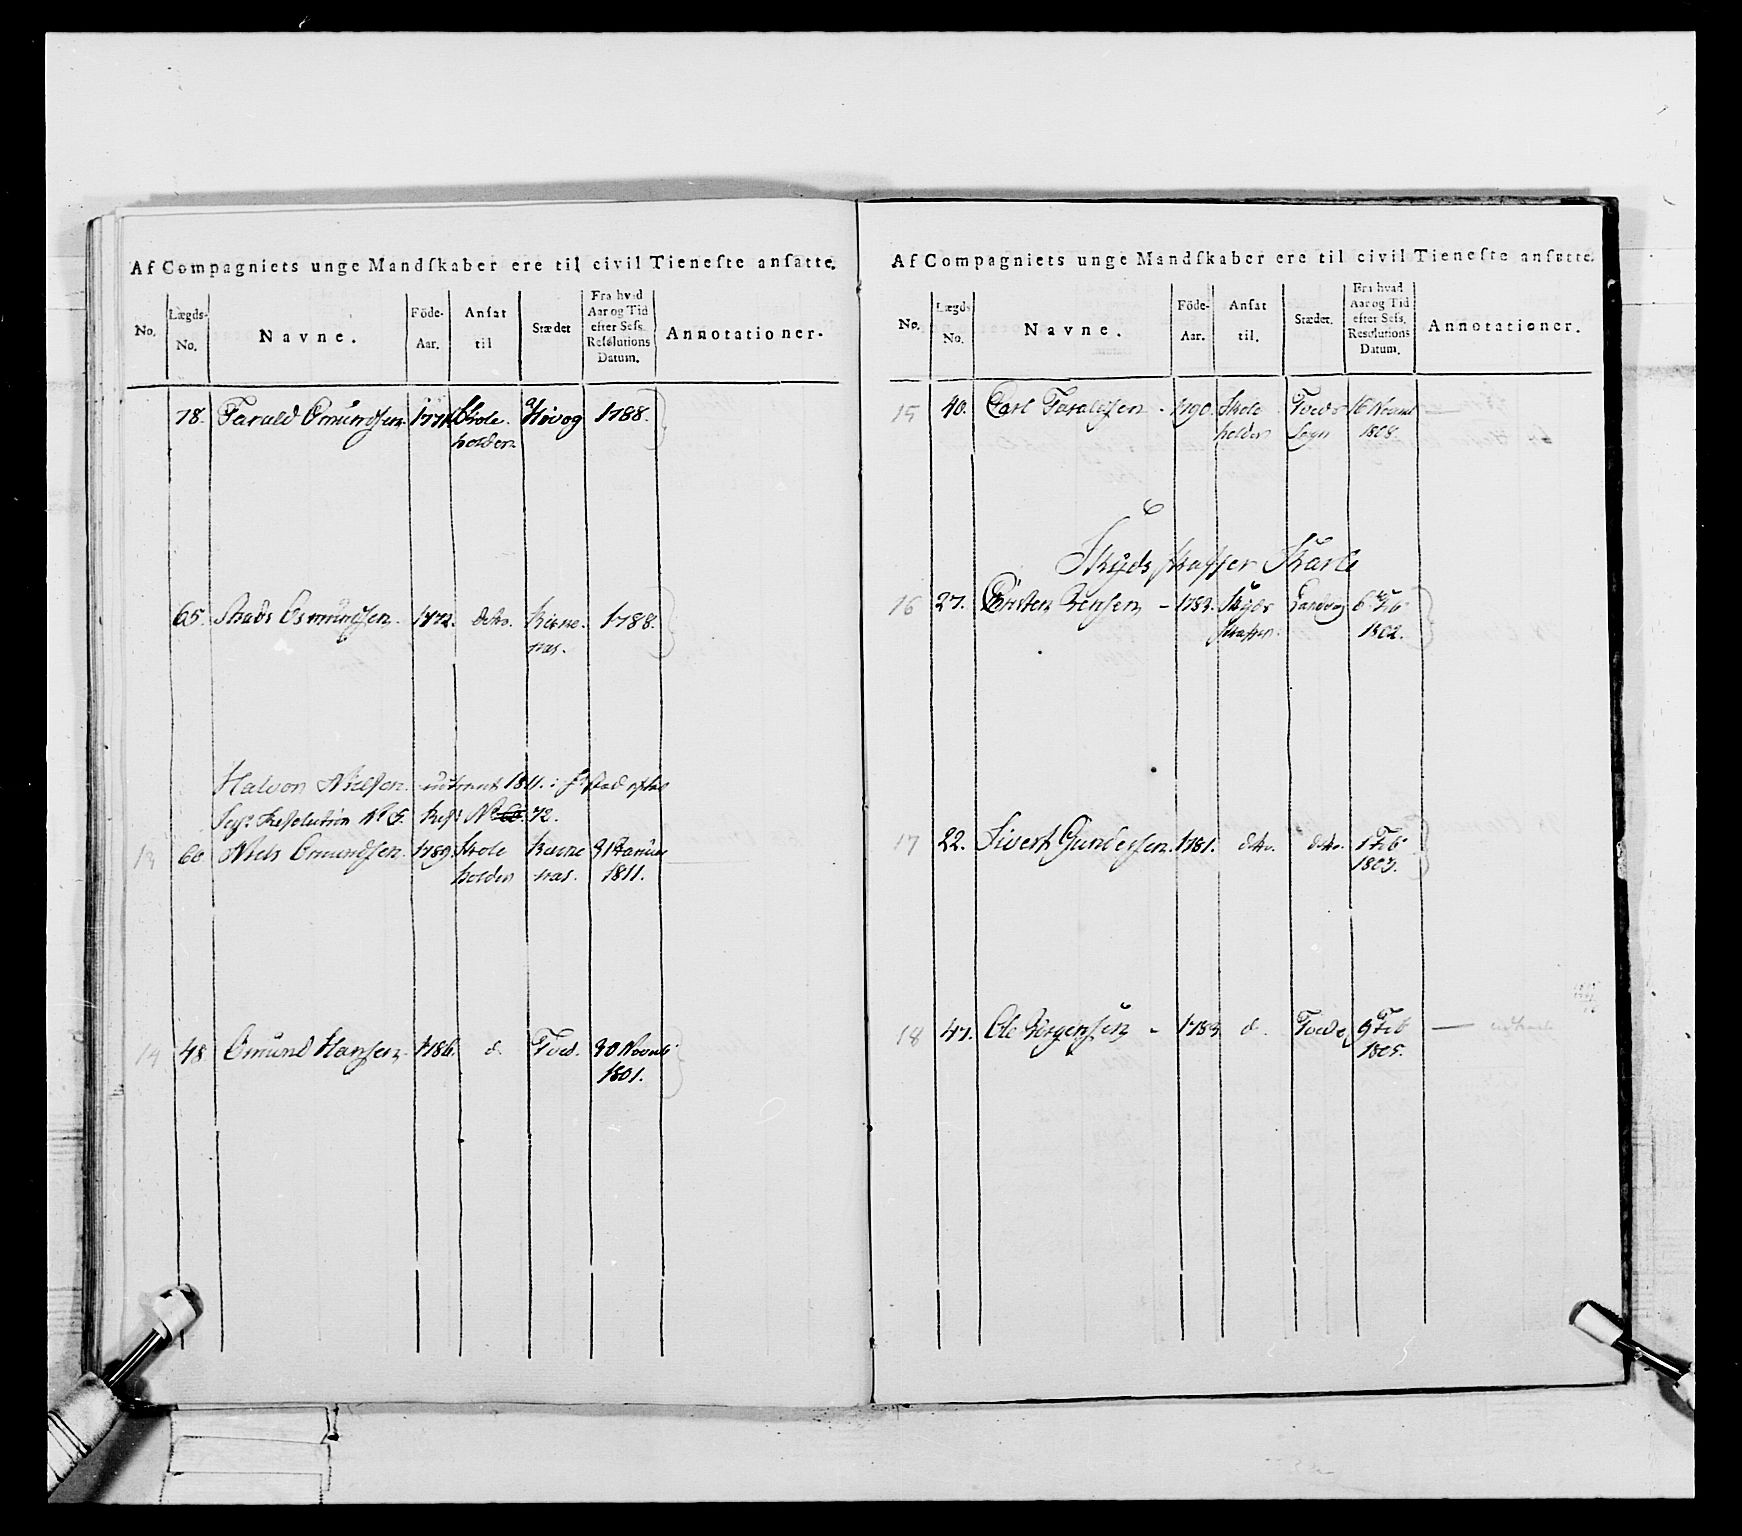 Af Compagniets unge Mandſkaber ere til civil Tieneſte anſatte.
No. Lægds-No. Navne. Föde-Aar. Anſat til Stædet Fra hvad Aar og Tid efter Seſs. Reſolutions Datum. Annotationer.
78. Tarald Omundsen 1771 Skole- Høvog 1788.
holder
65. Omundsen. 1772. ditto. 1788.
Halvor Nielsen
Resolution No 5. No 60. 72.
13 60 Niels Omundsen. 1789. Skole 31 Januar
holder 1811.
14 48 Omund Hansen. 1786. d. Tved. 30 Novemb
1801.
Af Compagniets unge Mandſkaber ere til civil Tieneſte anſatte.
No. Lægds No. Navne. Föde-Aar. Anſat til. Stædet. Fra hvad Aar og Tid efter Seſs. Reſolutions Datum. Annotationer.
15 40. Carl Taraldsen - 1790. Skole Tveds 16 Novemb
holder Sogn 1808.
6
Skyds skaffer Karle
16 27. Jensen - 1783. Skyds Landvig 6te Feb
skaffer. 1802.
17 22. Sivert Gundersen. 1781. ditto. ditto. 1 Feb
1803.
18 47. Ole Jörgensen - 1783 d. Tveds 9 Feb
1805.